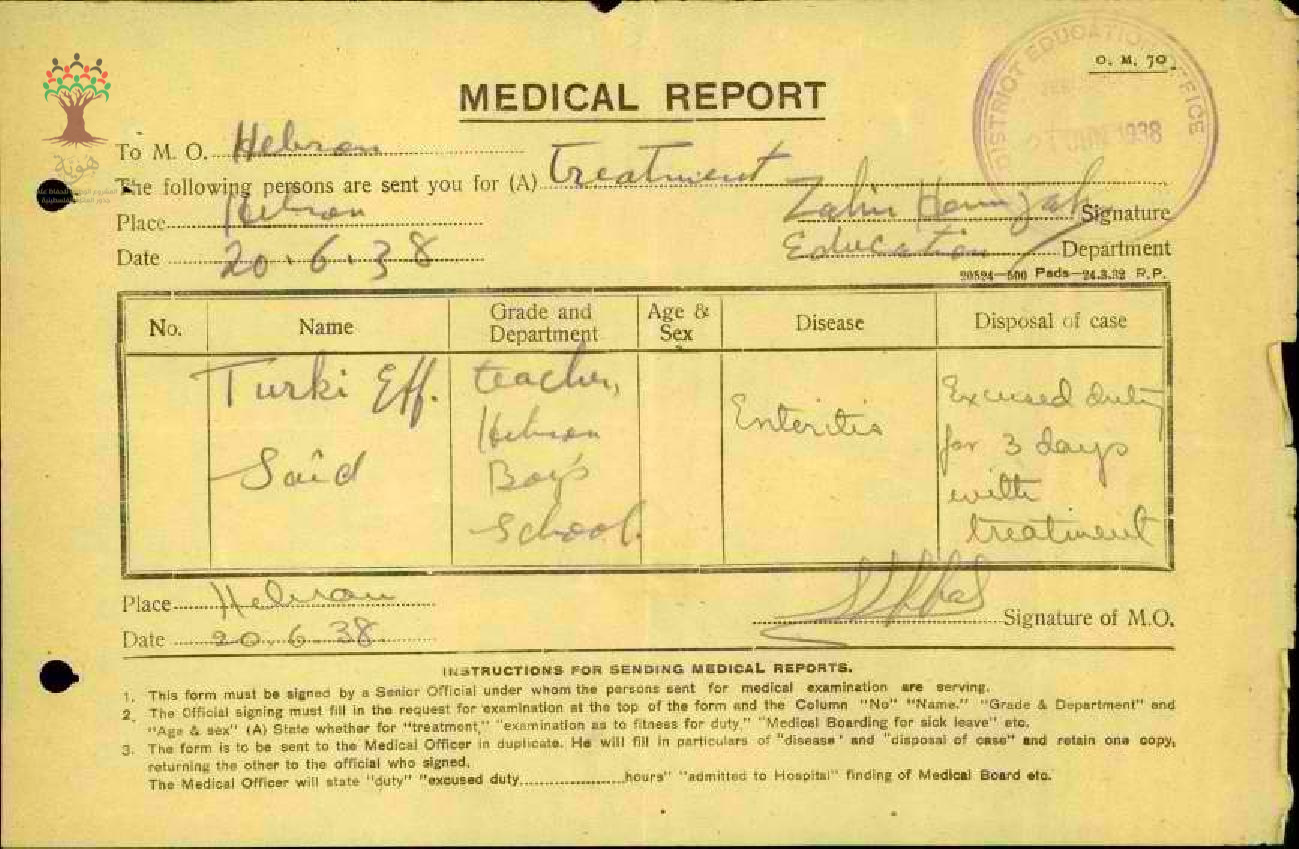 DISTRICT EDUCATION OFFICE
JUN 1938
O. M. 70.
MEDICAL REPORT
هوية
To M. O. Hebron
The following persons are sent you for (A) treatment
Place Hebron
Signature
Date 20.6.38
Education Department
20524—500 Pads—24.3.32 R.P.
No. Name Grade and Department Age & Sex Disease Disposal of case
Turki Eff. Said
teacher,
Hebron
Boy's
School.
Enteritis
Excused duty
for 3 days
with
treatment
Place Hebron
Signature of M.O.
Date 20.6.38
INSTRUCTIONS FOR SENDING MEDICAL REPORTS.
1. This form must be signed by a Senior Official under whom the persons sent for medical examination are serving.
2. The Official signing must fill in the request for examination at the top of the form and the Column "No" "Name." "Grade & Department" and
"Age & sex" (A) State whether for "treatment," "examination as to fitness for duty," "Medical Boarding for sick leave" etc.
3. The form is to be sent to the Medical Officer in duplicate. He will fill in particulars of "disease" and "disposal of case" and retain one copy,
returning the other to the official who signed.
The Medical Officer will state "duty" "excused duty..................hours" "admitted to Hospital" finding of Medical Board etc.